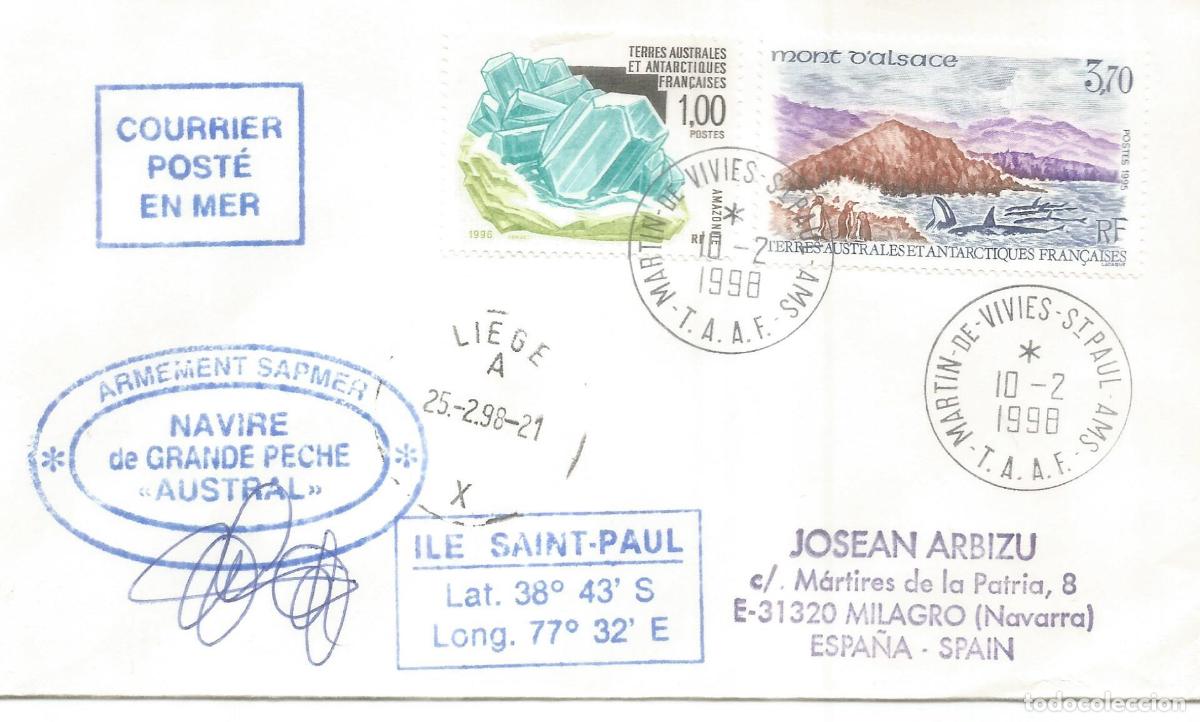 COURRIER
POSTÉ
EN MER
TERRES AUSTRALES
ET ANTARCTIQUES
FRANÇAISES
1,00
POSTES
AMAZONITE
1996
RF
mont d'alsace
3,70
POSTES 1995
RF
TERRES AUSTRALES ET ANTARCTIQUES FRANÇAISES
MARTIN-DE-VIVIES-ST PAUL-AMS
*
10-2
1998
-T.A.A.F.-
MARTIN-DE-VIVIES-ST PAUL-AMS
*
10-2
1998
-T.A.A.F.-
LIÈGE
A
25.-2.98-21
X
ARMEMENT SAPMER
* NAVIRE *
de GRANDE PECHE
«AUSTRAL»
ILE SAINT-PAUL
Lat. 38° 43' S
Long. 77° 32' E
JOSEAN ARBIZU
c/. Mártires de la Patria, 8
E-31320 MILAGRO (Navarra)
ESPAÑA - SPAIN
todocoleccion